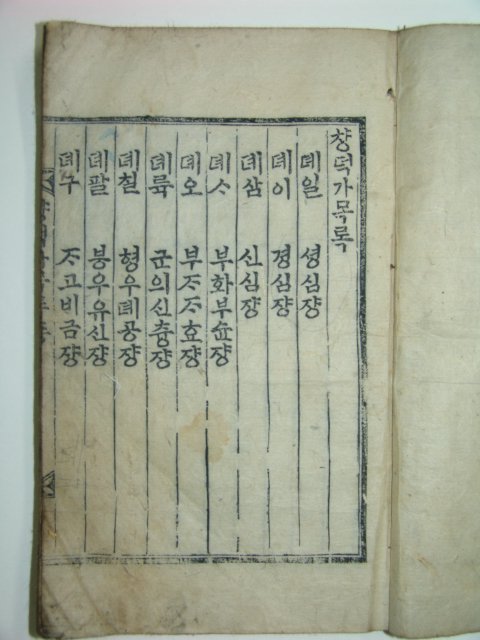 챵덕가목록
뎨일 셩심쟝
뎨이 경심쟝
뎨삼 신심쟝
뎨ᄉᆞ 부화부슌쟝
뎨오 부ᄌᆞᄌᆞ효쟝
뎨륙 군의신츙쟝
뎨칠 형우뎨공쟝
뎨팔 븡우유신쟝
뎨구 ᄌᆞ고비금쟝